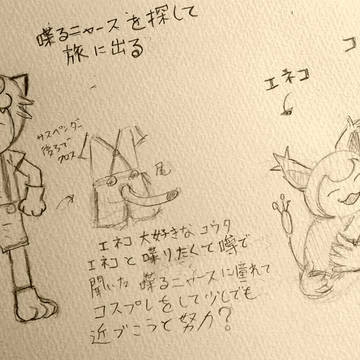 喋るニャースを探して
旅に出る
コ
エネコ
サスペンダー
後ろで
クロス
尾
エネコ大好きなコウタ
エネコと喋りたくて噂で
聞いた喋るニャースに憧れて
コスプレをして少しでも
近づこうと努力？